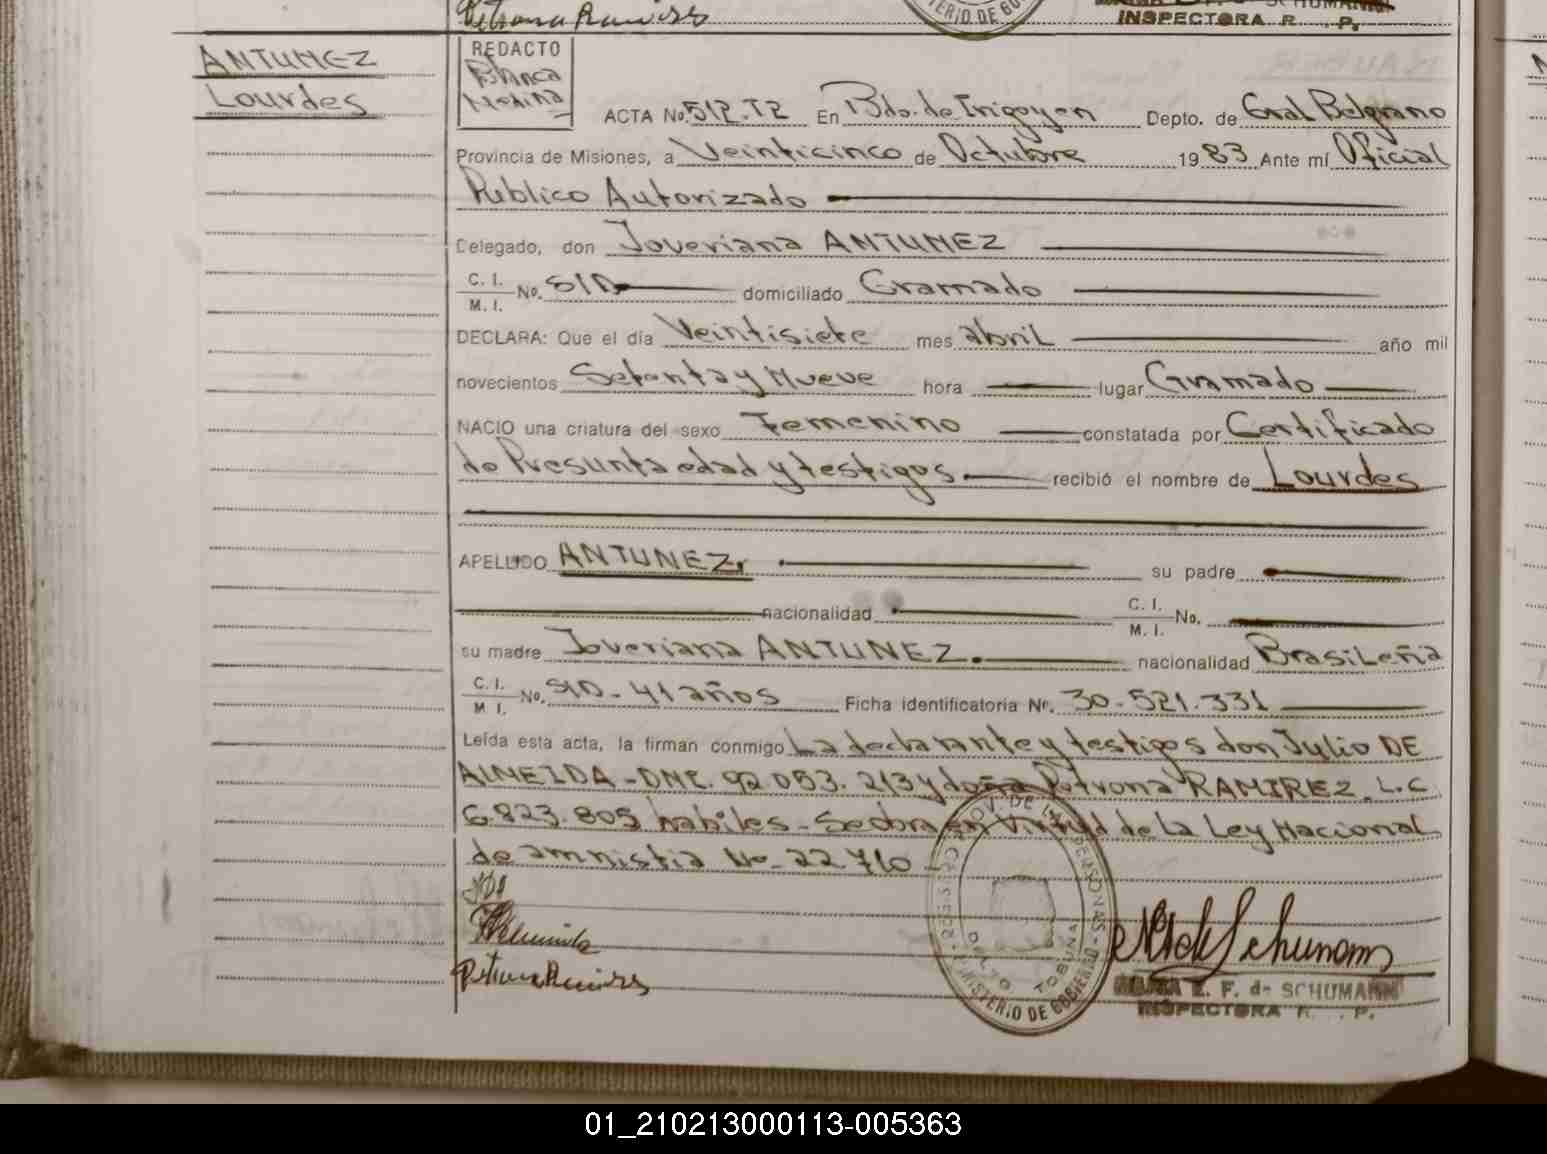 Petrona Ramirez
INSPECTORA R. P.
ANTUNEZ
Lourdes
REDACTO
Blanca
Medina
ACTA No. 512.T2 En Bdo. de Irigoyen Depto. de Gral Belgrano
Provincia de Misiones, a Veinticinco de Octubre 1983 Ante mí Oficial
Publico Autorizado
Delegado, don Joveriana ANTUNEZ
C. I.
M. I. No. S/D domiciliado Gramado
DECLARA: Que el día Veintisiete mes abril año mil
novecientos Setenta y Nueve hora lugar Gramado
NACIO una criatura del sexo Femenino constatada por Certificado
de Presunta edad y testigos recibió el nombre de Lourdes
APELLIDO ANTUNEZ. su padre
nacionalidad C. I.
M. I. No.
su madre Joveriana ANTUNEZ. nacionalidad Brasileña
C. I.
M. I. No. S/D - 41 años Ficha identificatoria Nº. 30.521.331
Leída esta acta, la firman conmigo La declarante y testigos don Julio DE
ALMEIDA - DNI. 92.053.213 y doña Petrona RAMIREZ. L.C
6.823.805 habiles - Se obra en virtud de la Ley Nacional
de amnistia No. 22.710
Petrona Ramirez
MINISTERIO DE GOBIERNO
TOBUNA
E. F. de SCHUMANN
INSPECTORA R. P.
01_210213000113-005363